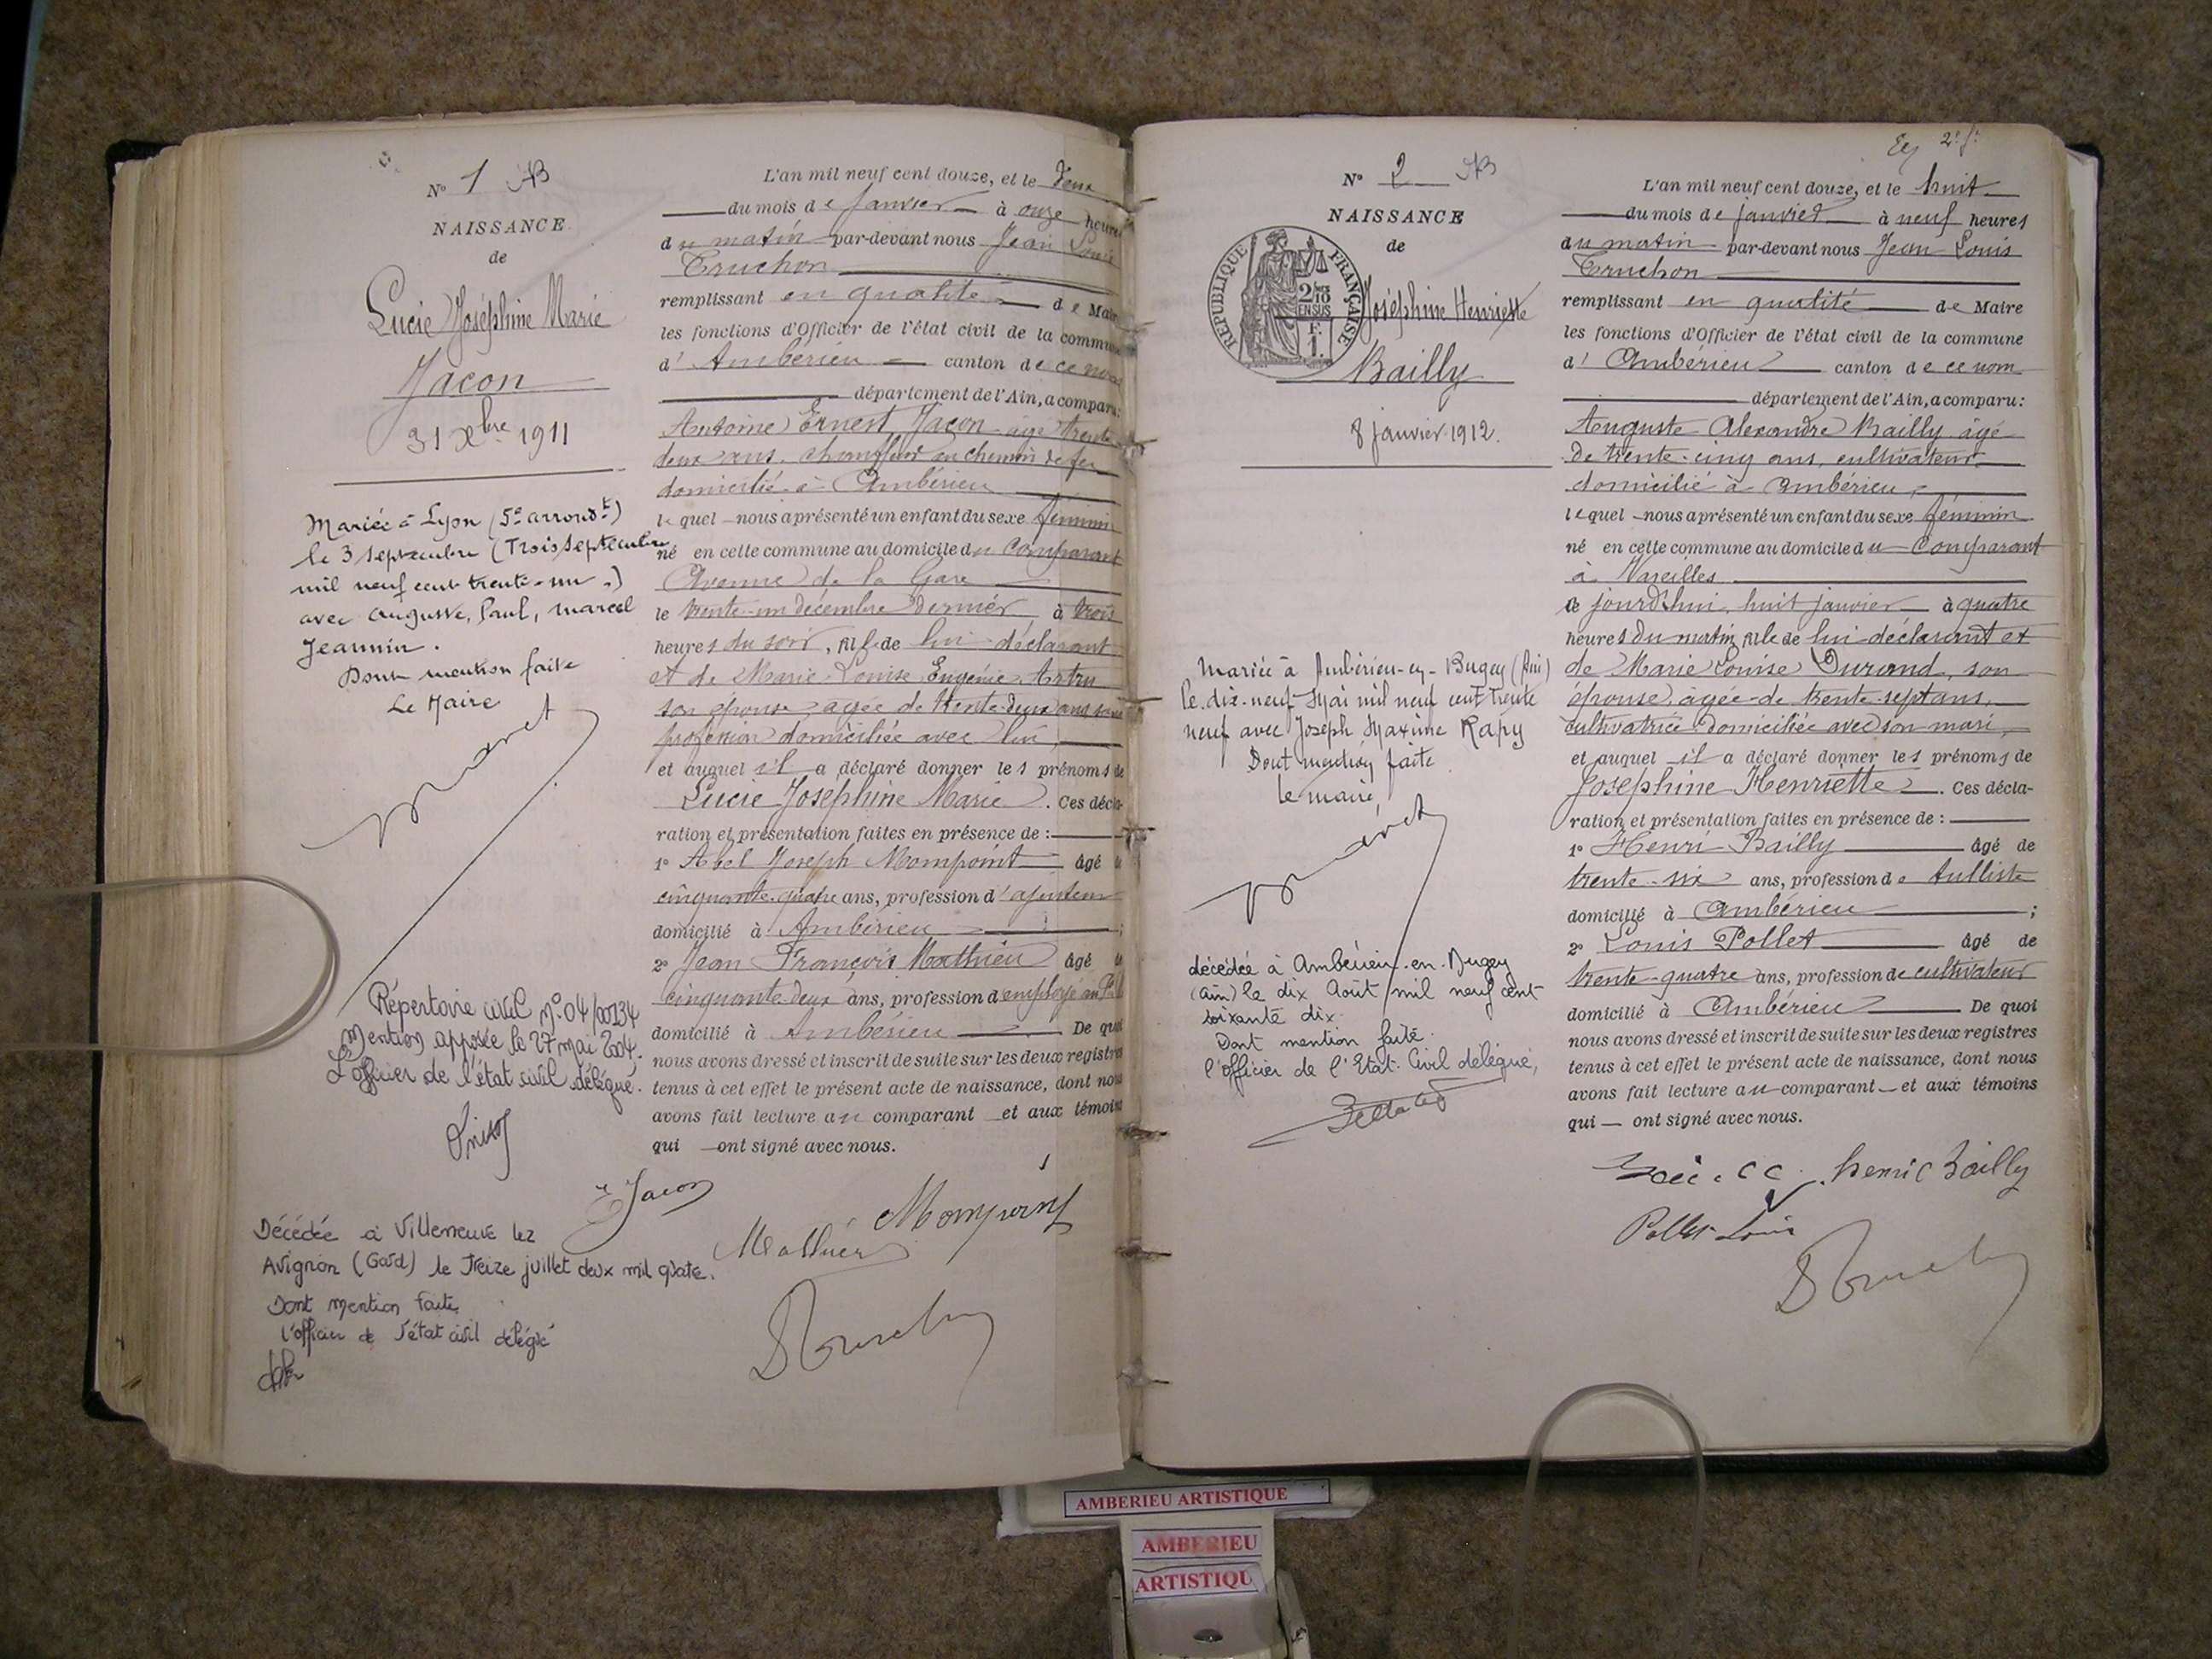 N° 1 AB
NAISSANCE
de
Lucie Joséphine Marie
Jacon
31 Xbre 1911
Mariée à Lyon (5e arrondt)
le 3 septembre (Trois septembre
mil neuf cent trente-un.)
avec Auguste, Paul, Marcel
Jeannin.
Dont mention faite
Le Maire
Répertoire civil N°04/00134
Mention apposée le 27 mai 2004.
L'officier de l'état civil délégué.
Décédée à Villeneuve lez
Avignon (Gard) le treize juillet deux mil quatre.
Dont mention faite
l'officier de l'état civil délégué
L'an mil neuf cent douze, et le deux
du mois de Janvier à onze heures
du matin par-devant nous Jean Louis
Truchon
remplissant en qualité de Maire
les fonctions d'Officier de l'état civil de la commune
d' Ambérieu canton de ce nom
département de l'Ain, a comparu:
Antoine Ernest Jacon âgé trente
deux ans, chauffeur au chemin de fer
domicilié à Ambérieu
lequel nous a présenté un enfant du sexe féminin
né en cette commune au domicile du comparant
Avenue de la Gare
le trente-un décembre dernier à trois
heures du soir, fille de lui déclarant
et de Marie Louise Eugénie Artru
son épouse, âgée de trente-deux ans sans
profession domiciliée avec lui,
et auquel il a déclaré donner les prénoms de
Lucie Joséphine Marie. Ces décla-
ration et présentation faites en présence de :
1° Abel Joseph Mompoint âgé
cinquante-quatre ans, profession d'ajusteur
domicilié à Ambérieu ;
2° Jean François Mathieu âgé
cinquante deux ans, profession d'employé au
domicilié à Ambérieu De quoi
nous avons dressé et inscrit de suite sur les deux registres
tenus à cet effet le présent acte de naissance, dont nous
avons fait lecture au comparant et aux témoins
qui ont signé avec nous.
E Jacon
Mathieu Mompoint
N° 2 AB
NAISSANCE
de
REPUBLIQUE FRANÇAISE
2/10 EN SUS
F.
1.
Joséphine Henriette
Bailly
8 janvier 1912.
Mariée à Ambérieu-en-Bugey (Ain)
le dix-neuf Mai mil neuf cent trente
neuf avec Joseph Maxime Rapy
Dont mention faite
Le maire,
décédée à Ambérieu-en-Bugey
(Ain) le dix Août mil neuf cent
soixante dix
Dont mention faite
l'officier de l'Etat Civil délégué,
L'an mil neuf cent douze, et le huit
du mois de janvier à neuf heures
du matin par-devant nous Jean Louis
Truchon
remplissant en qualité de Maire
les fonctions d'Officier de l'état civil de la commune
d' Ambérieu canton de ce nom
département de l'Ain, a comparu:
Auguste Alexandre Bailly âgé
de trente-cinq ans, cultivateur
domicilié à Ambérieu,
lequel nous a présenté un enfant du sexe féminin
né en cette commune au domicile du comparant
à Vareilles
ce jourd'hui, huit janvier à quatre
heures du matin, fille de lui déclarant et
de Marie Louise Durand, son
épouse, âgée de trente-sept ans,
cultivatrice domiciliée avec son mari,
et auquel il a déclaré donner les prénoms de
Joséphine Henriette. Ces décla-
ration et présentation faites en présence de :
1° Henri Bailly âgé de
trente-six ans, profession de tulliste
domicilié à Ambérieu ;
2° Louis Pollet âgé de
trente-quatre ans, profession de cultivateur
domicilié à Ambérieu De quoi
nous avons dressé et inscrit de suite sur les deux registres
tenus à cet effet le présent acte de naissance, dont nous
avons fait lecture au comparant et aux témoins
qui ont signé avec nous.
henri Bailly
Pollet Louis
AMBERIEU ARTISTIQUE
AMBERIEU
ARTISTIQU